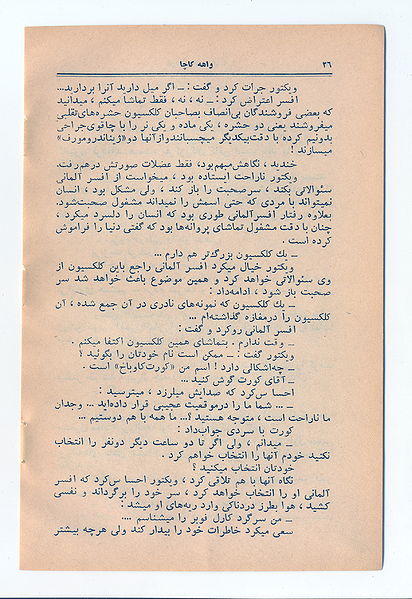 ۲۶ واهه كاچا
ویکتور جرات کرد و گفت : ــ اگر میل دارید آنرا بردارید...
افسر اعتراض کرد : ــ نه ، نه ، فقط تماشا میکنم ، میدانید
که بعضی فروشندگان بی‌انصاف بصاحبان کلکسیون حشره‌های‌تقلبی
میفروشند یعنی دو حشره ، یکی ماده و یکی نر را با چاقوی‌جراحی
بدونیم کرده با دقت‌بیکدیگر میچسبانندوازآنها دو«ژیناندرومورف»
میسازند !
خندید ، نگاهش‌مبهم‌بود، فقط عضلات صورتش درهم‌رفت.
ویکتور ناراحت ایستاده بود ، میخواست از افسر آلمانی
سئوالاتی بکند ، سرصحبت را باز کند ، ولی مشکل بود ، انسان
نمیتواند با مردی که حتی اسمش را نمیداند مشغول صحبت‌شود.
بعلاوه رفتار افسرآلمانی طوری بود که انسان را دلسرد میکرد ،
چنان با دقت مشغول تماشای پروانه‌ها بود که گفتی دنیا را فراموش
کرده است .
ــ یك کلکسیون بزرگ‌تر هم دارم ...
ویکتور خیال میکرد افسر آلمانی راجع باین کلکسیون از
وی سئوالاتی خواهد کرد و همین موضوع باعث خواهد شد سر
صحبت باز شود ، ادامه‌داد :
ــ یك کلکسیون که نمونه‌های نادری در آن جمع شده ، آن
کلکسیون را درمغازه گذاشته‌ام ...
افسر آلمانی روکرد و گفت :
ــ وقت ندارم . بتماشای همین کلکسیون اکتفا میکنم .
ویکتور گفت : ــ ممکن است نام خودتان را بگوئید ؟
ــ چه‌اشکالی دارد ! اسم من «کورت‌کاوباخ» است .
ــ آقای کورت گوش کنید ...
احساس‌کرد که صدایش میلرزد ، میترسید :
ــ ... شما ما را درموقعیت عجیبی قرار داده‌اید ... وجدان
ما ناراحت است ، متوجه هستید ؟... ما همه با هم دوستیم ...
کورت با سردی جواب‌داد :
ــ میدانم ، ولی اگر تا دو ساعت دیگر دونفر را انتخاب
نکنید خودم آنها را انتخاب خواهم کرد .
خودتان انتخاب میکنید ؟
نگاه آنها با هم تلاقی کرد ، ویکتور احساس‌کرد که افسر
آلمانی او را انتخاب خواهد کرد ، سر خود را برگرداند و نفسی
کشید ، هوا بطرز دردناکی وارد ریه‌های او میشد :
ــ من سرگرد کارل فوبر را میشناسم ....
سعی میکرد خاطرات خود را بیدار کند ولی هرچه بیشتر